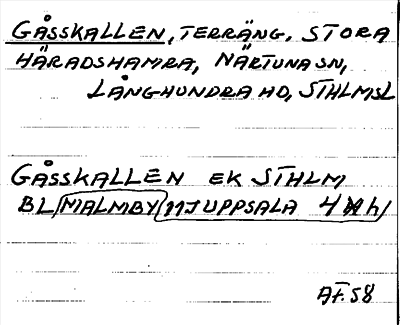 GÅSSKALLEN, TERRÄNG, STORA
HÄRADSHAMRA, NÄRTUNA SN,
LÅNGHUNDRA HD, STHLMSL
GÅSSKALLEN EK STHLM
BL, MALMBY 11J UPPSALA 4 h/
AF. 58